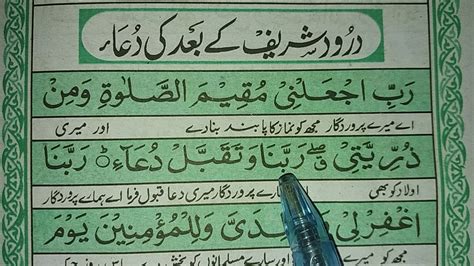 درود شریف کے بعد کی دعاء
رَبِّ اجْعَلْنِیْ مُقِیْمَ الصَّلٰوۃِ وَمِنْ
اے میرے پروردگار مجھ کو نماز کا پابند بنا دے اور میری
ذُرِّیَّتِیْ ۖ رَبَّنَا وَتَقَبَّلْ دُعَآءِ ۝ رَبَّنَا
اولاد کو بھی پروردگار میری دعا قبول فرما اے ہمارے پروردگار
اغْفِرْ لِیْ وَلِلْمُؤْمِنِیْنَ یَوْمَ
مجھ کو اور سارے مسلمانوں کو